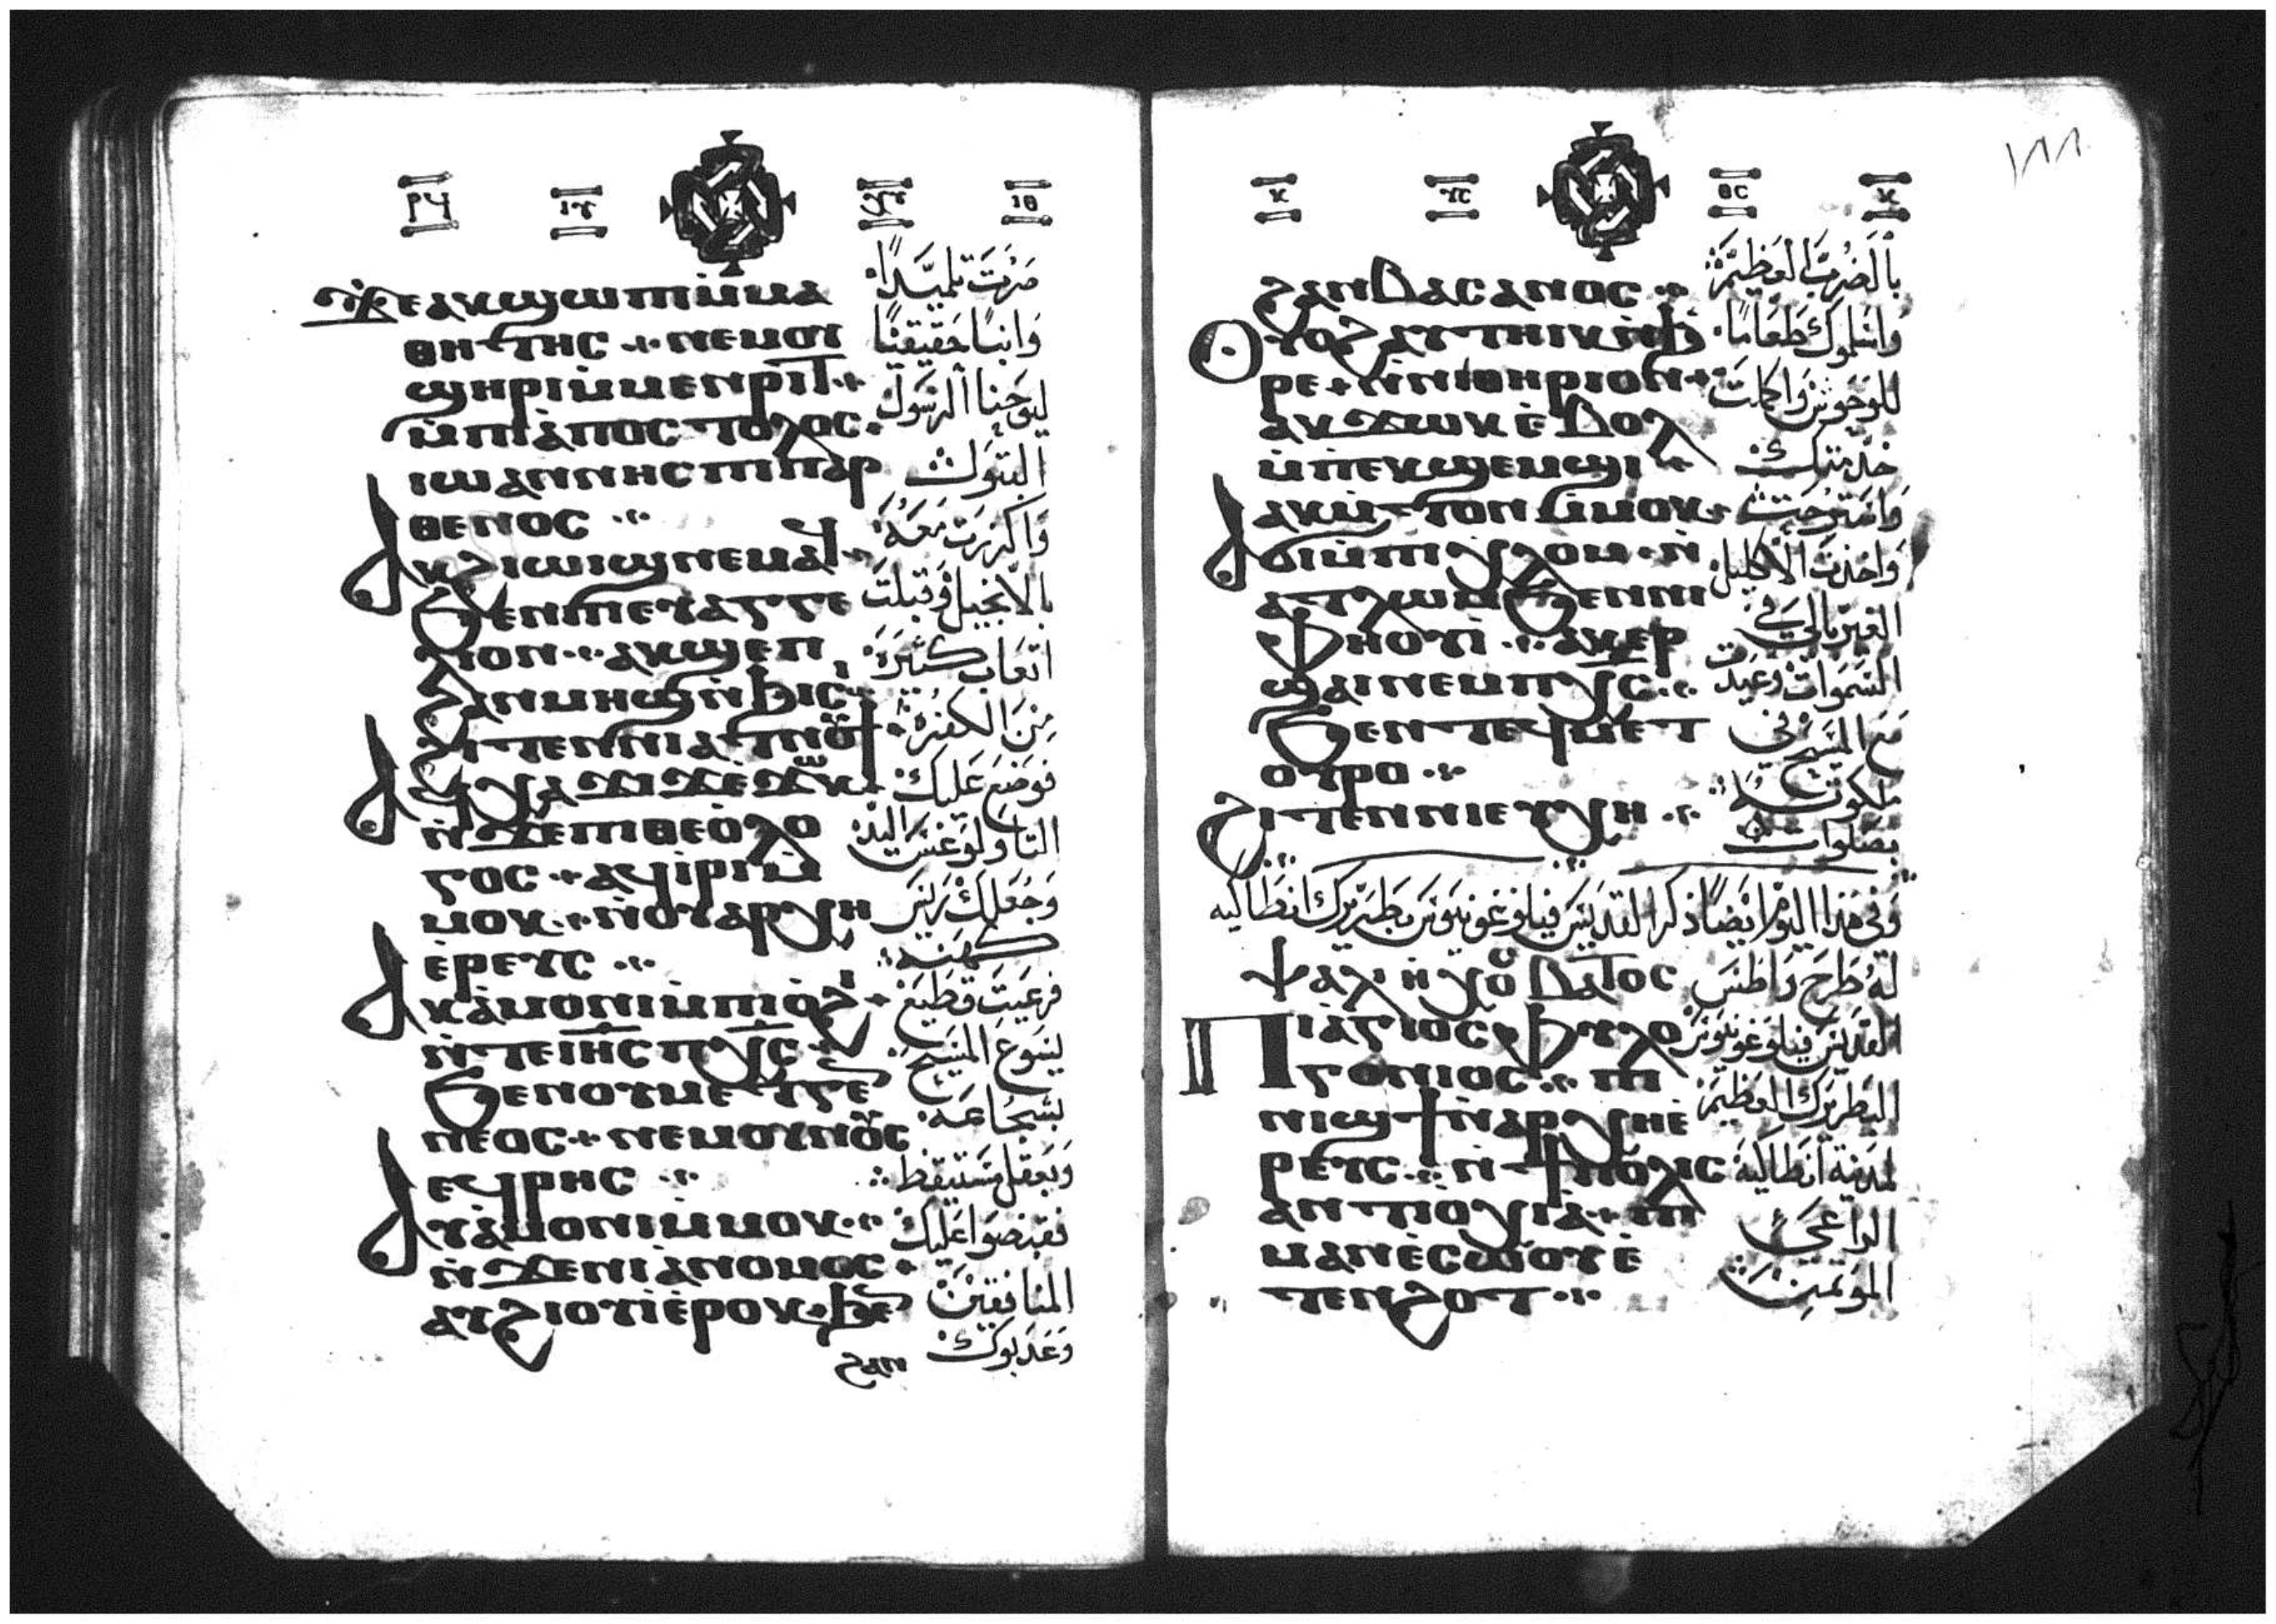 ⲓⲑ
ⲁⲕϣⲱⲡⲓ ⲙ̀ⲙⲁ
ⲑⲏⲧⲏⲥ ⲛⲉⲙ ⲟⲩ
ϣⲏⲣⲓ ⲙ̀ⲙⲉⲛⲣⲓⲧ
ⲙ̀ⲡⲓⲁ̀ⲡⲟⲥⲧⲟⲗⲟⲥ
ⲓⲱⲁⲛⲛⲏⲥ ⲡⲓⲡⲁⲣ
ⲑⲉⲛⲟⲥ
ⲁⲕϩⲓⲱⲓϣ ⲛⲉⲙⲁϥ
ϧⲉⲛ ⲡⲓⲉⲩⲁⲅⲅⲉ
ⲗⲓⲟⲛ ⲁⲕϣⲉⲡ
ϩⲁⲛⲙⲏϣ ⲛ̀ϧⲓⲥⲓ
ϩⲓⲧⲉⲛ ⲛⲓⲁⲑⲛⲟⲩϯ
ⲁϥⲭⲁ ϫⲓϫ ⲉ̀ϫⲱⲕ
ⲛ̀ϫⲉ ⲡⲓⲑⲉⲟ̀ⲗⲟ
ⲅⲟⲥ ⲁϥⲓ̀ⲣⲓ ⲙ̀
ⲙⲟⲕ ⲛ̀ⲟⲩⲁⲣⲭⲏ
ⲉ̀ⲣⲉⲩⲥ
ⲁⲕⲁ̀ⲙⲟⲛⲓ ⲙ̀ⲡⲓⲟ̀ϩⲓ
ⲛ̀ⲧⲉ ⲓⲏ̅ⲥ̅ ⲡⲭ̅ⲥ̅
ϧⲉⲛ ⲟⲩⲙⲉⲧⲅⲉ
ⲛⲉⲟⲥ ⲛⲉⲙ ⲟⲩⲛⲟⲩⲥ
ⲉϥⲣⲏⲥ
ⲁⲩⲁ̀ⲙⲟⲛⲓ ⲙ̀ⲙⲟⲕ
ⲛ̀ϫⲉ ⲛⲓⲁ̀ⲛⲟⲙⲟⲥ
ⲁⲩϩⲓⲟⲩⲓ̀ ⲉ̀ⲣⲟⲕ ϧⲉⲛ
ϩⲁⲛ
صرت تلميذاً
وابناً حقيقياً
ليوحنا الرسول
البتول
واكرزت معه
بالانجيل وقبلت
اتعاب كثيرة
من الكفرة
فوضع عليك
الثاولوغس اليد
وجعلك رئيس
كهنة
فرعيت قطيع
يسوع المسيح
بشجاعة
وبعقل مستيقظ
فقبضوا عليك
المنافقين
وعذبوك
ϩⲁⲛⲃⲁⲥⲁⲛⲟⲥ
ⲟⲩⲟϩ ⲁⲩⲧⲏⲓⲕ ⲛ̀ϧ
ⲣⲉ ⲛ̀ⲛⲓⲑⲏⲣⲓⲟⲛ
ⲁⲕϫⲱⲕ ⲉ̀ⲃⲟⲗ
ⲙ̀ⲡⲉⲕϣⲉⲙϣⲓ
ⲁⲕⲙ̀ⲧⲟⲛ ⲙ̀ⲙⲟⲕ
ⲁⲕϭⲓ ⲙ̀ⲡⲓⲭⲗⲟⲙ ⲛ̀
ⲁⲧⲗⲱⲙ ϧⲉⲛ ⲛⲓ
ⲫⲏⲟⲩⲓ̀ ⲁⲕⲉⲣ
ϣⲁⲓ ⲛⲉⲙ ⲡⲭ̅ⲥ̅
ϧⲉⲛ ⲧⲉϥⲙⲉⲧ
ⲟⲩⲣⲟ
ϩⲓⲧⲉⲛ ⲛⲓⲉⲩⲭⲏ
بالضربات العظيمة
واسلموك طعاماً
للوحوش واكملت
خدمتك
واسترحت
واخذت الاكليل
الغير بالي في
السموات وعيدت
مع المسيح في
ملكوته
بصلوات
وفي هذا اليوم ايضاً ذكر القديس فيلوغونيوس بطريرك انطاكيه
ⲯⲁⲗⲓ ⲛ̀ⲭⲟⲩ ⲃⲁⲧⲟⲥ
ⲡⲓⲁ̀ⲅⲓⲟⲥ ⲫⲩⲗⲟ
ⲅⲟⲛⲓⲟⲥ ⲡⲓ
ⲛⲓϣϯ ⲛ̀ⲁⲣⲭⲏⲉ̀
ⲣⲉⲩⲥ ⲛ̀ϯⲡⲟⲗⲓⲥ
ⲁⲛⲧⲓⲟ̀ⲭⲓⲁ̀ ⲡⲓ
ⲙⲁⲛⲉ̀ⲥⲱⲟⲩ ⲉ̀
ⲧⲉⲛϩⲟⲧ
له طرح واطس
القديس فيلوغونيوس
البطريرك العظيم
لمدينة انطاكية
الراعي
المؤتمن